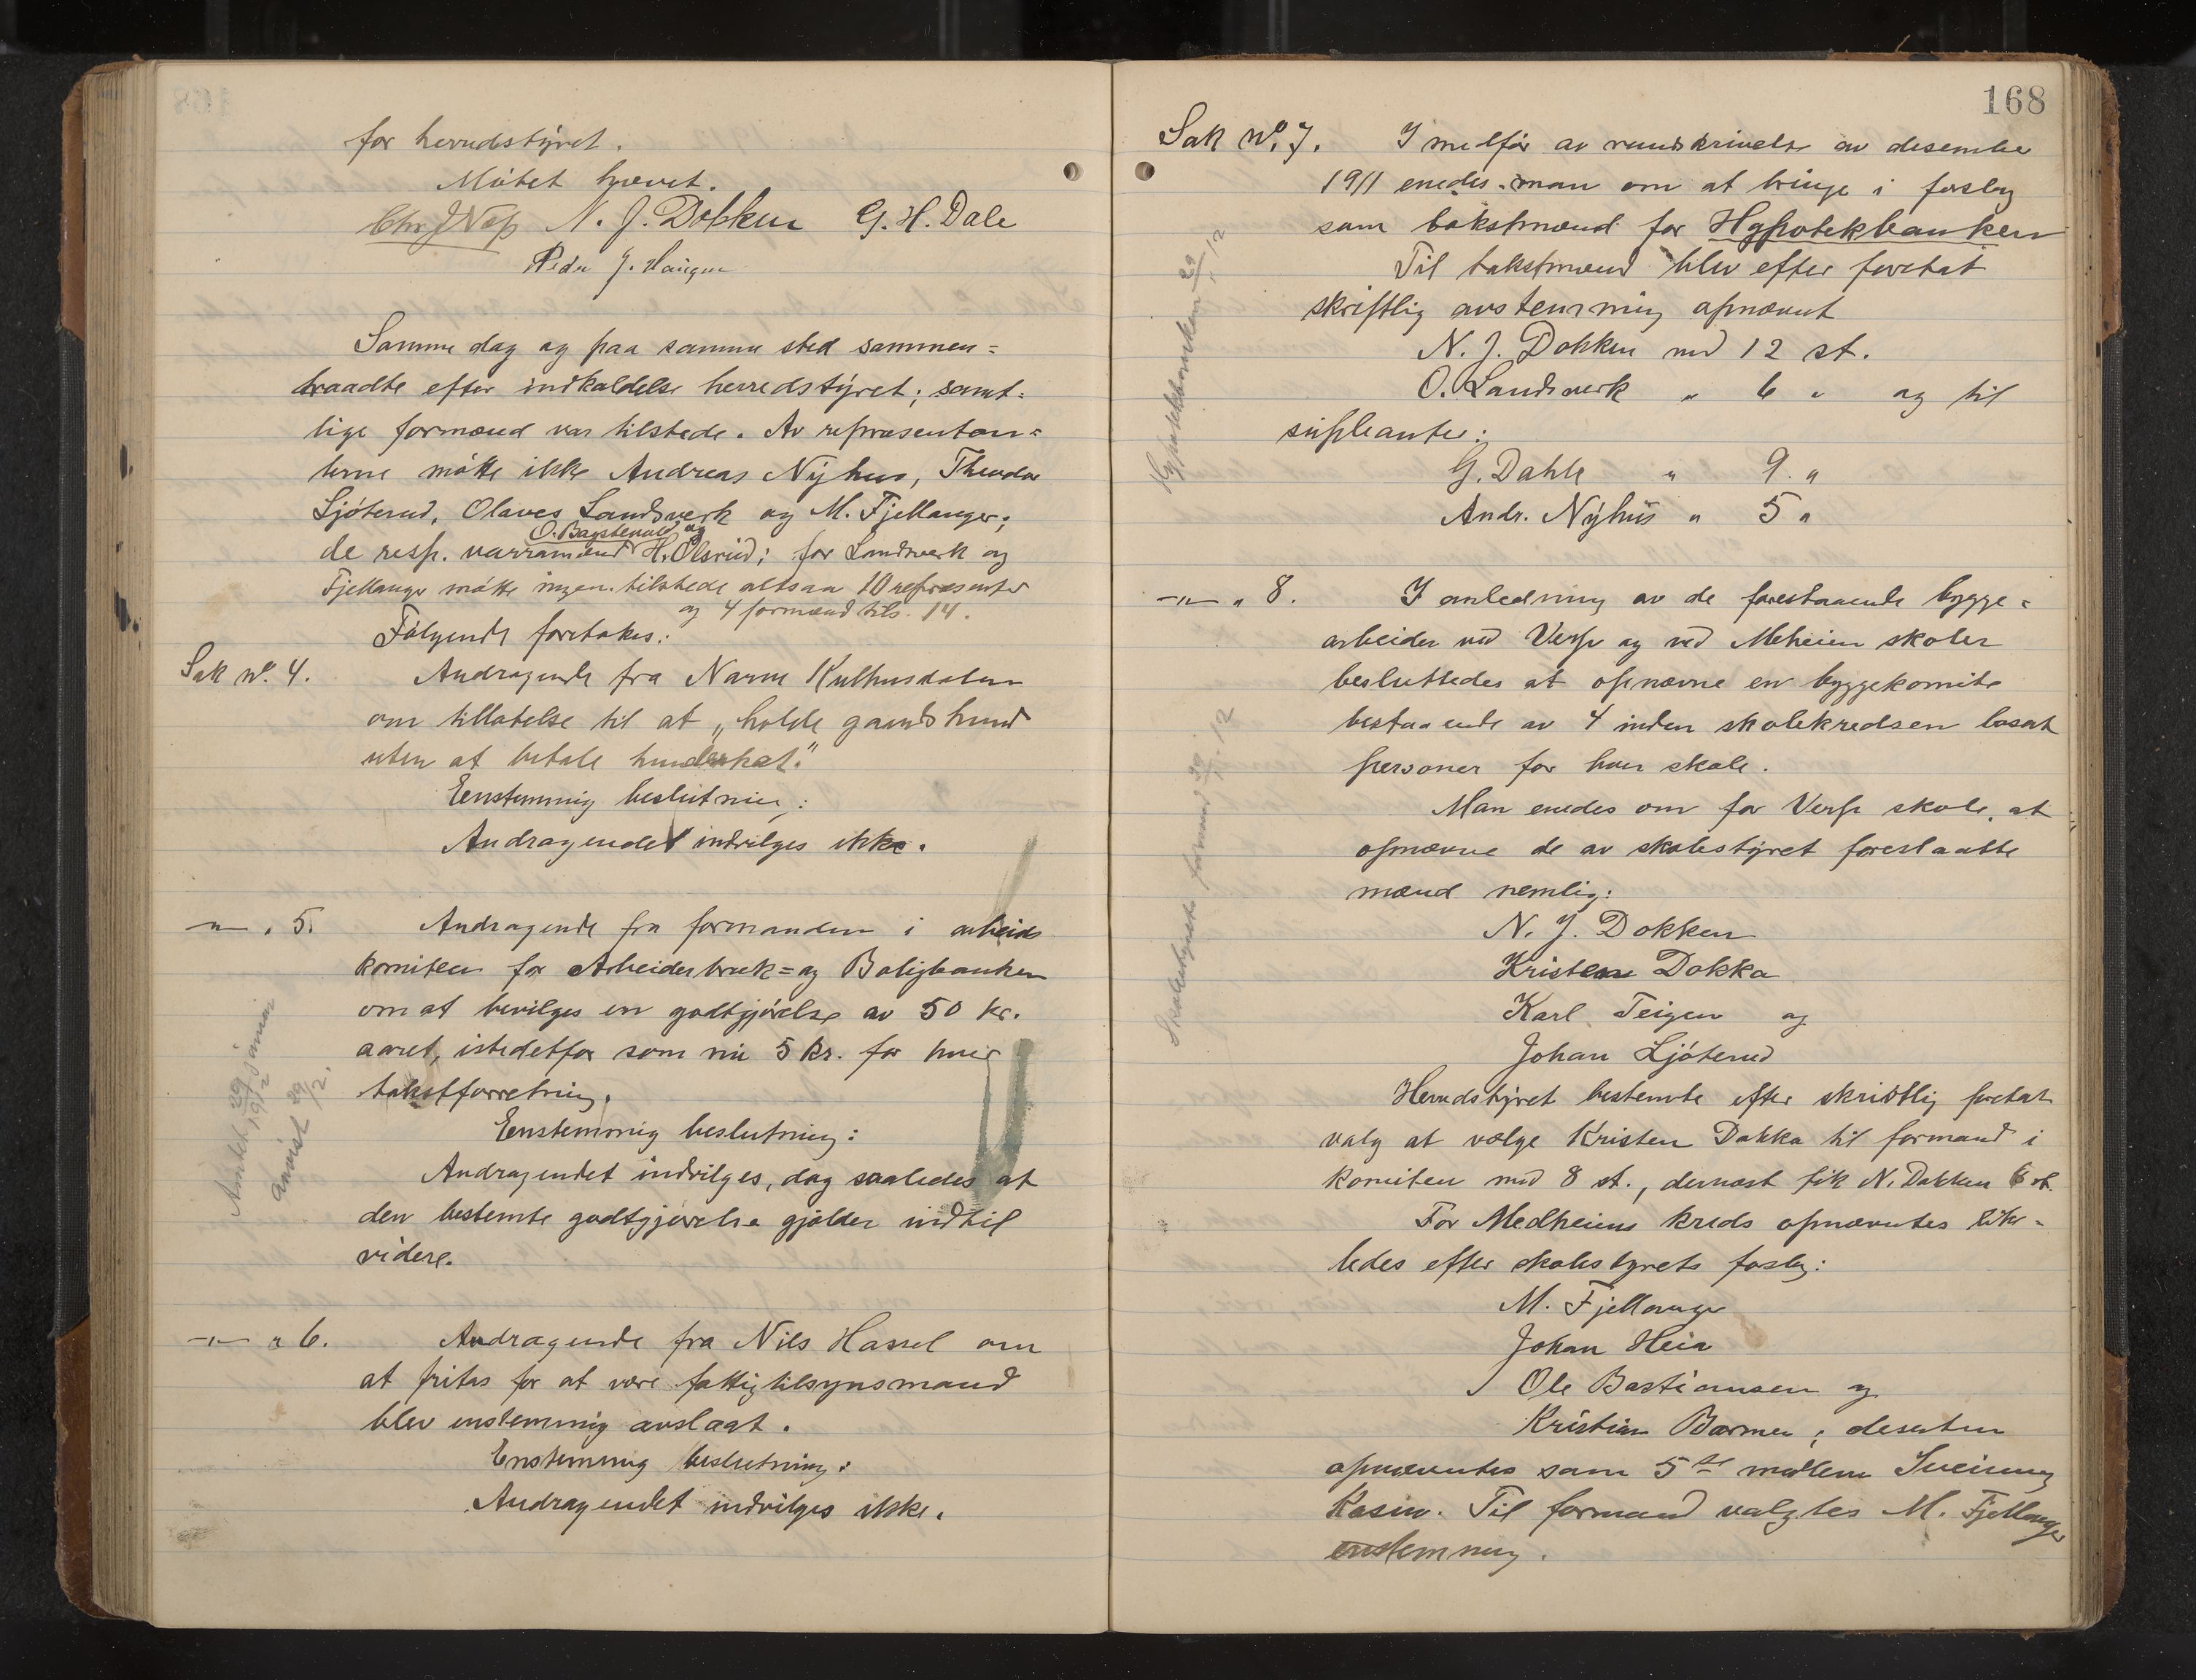 for herredstyret.
Møtet hævet.
N. J. Dokken G. H. Dale
Peder J. Haugen
Samme dag og paa samme sted sammen=
traadte efter indkaldelse herredstyret; samt=
lige formænd var tilstede. Av repræsentan=
terne møtte ikke Andreas Nyhus, Theodor
Ljøterud, Olaves Landsverk og M. Fjellanger;
de resp. varramænd O. Bagstevold og H. Olsrud; for Landsverk og
Fjellanger møtte ingen tilstede altsaa 10 repræsenter
og 4 formænd tils. 14.
Følgende foretokes:
Sak No. 4. Andragende fra Narve Kulhusdalen
om tillatelse til at „holde gaardshund
uten at betale hundeskat."
Eenstemmig beslutning:
Andragendet indvilges ikke.
-"- " 5. Andragende fra formanden i arbeids
komiteen for Arbeiderbruk= og Boligbanken
om at bevilges en godtgjørelse av 50 kr.
aaret, istedetfor som nu 5 kr. for hver
takstforretning.
Eenstemmig beslutning:
Andragendet indvilges, dog saaledes at
den bestemte godtgjørelse gjælder indtil
videre.
Amtet 29/1 1912
Anvist 29/12.
-"- " 6. Andragende fra Nils Hassel om
at fritas for at være fattigtilsynsmand
blev enstemmig avslaat.
Enstemmig beslutning:
Andragendet indvilges ikke.
168
Sak No. 7. I medfør av rundskrivelse av desember
1911 enedes man om at bringe i forslag
som takstmænd for Hypotekbanken
Til takstmænd blev efter foretat
skriftlig avstemning opnævnt
N. J. Dokken med 12 st.
O. Landsverk " 6 " og til
supleanter:
G. Dahle " 9. "
Andr. Nyhus " 5 "
Hypotekbanken 29/1 12
-"- " 8. I anledning av de forestaaende bygge=
arbeider ved Verp og ved Meheien skoler
besluttedes at opnævne en byggekomite
bestaaende av 4 inden skolekredsen bosat
personer for hver skole.
Man enedes om for Verp skole, at
opnævne de av skolestyret foreslaatte
mænd nemlig:
N. J. Dokken
Kristen Dokka
Karl Teigen og
Johan Ljøterud
Herredstyret bestemte efter skriftlig foretat
valg at vælge Kristen Dokka til formand i
komiteen med 8 st., dernæst fik N. Dokken 6 st.
For Medheiens kreds opnævntes like=
ledes efter skolestyrets forslag:
M. Fjellanger
Johan Heia
Ole Bastiansen og
Kristian Barmen; desuten
opnævntes som 5te medlem Sveinung
Kasin. Til formand valgtes M. Fjellanger
enstemmig.
Skolestyrets formand 12